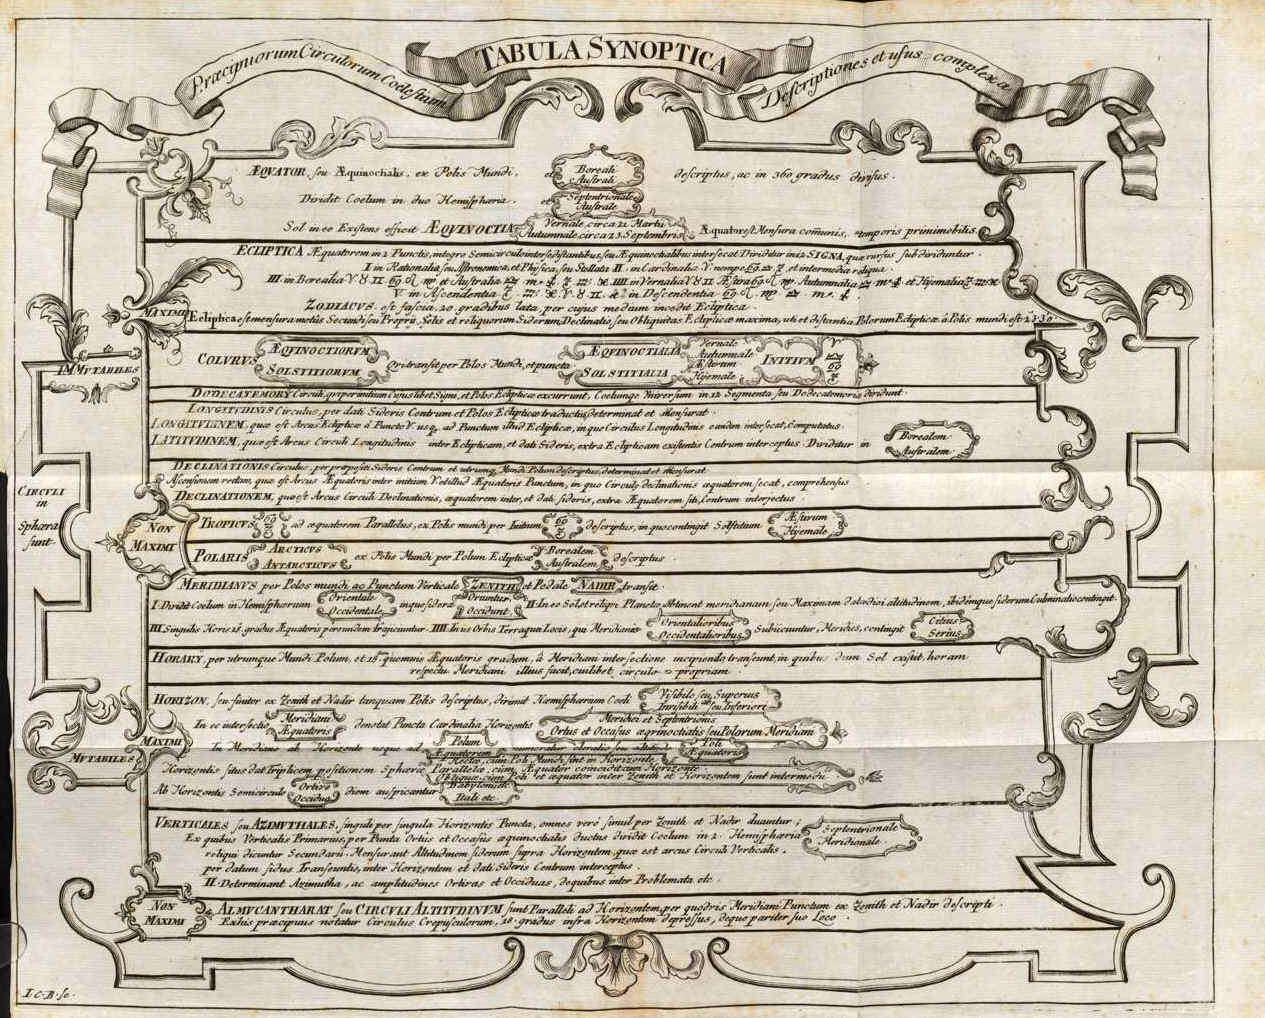 TABULA SYNOPTICA
Præcipuorum Circulorum Coelestium
Descriptiones et usus complexa
CIRCVLI
in
Sphæra
sunt
IMMVTABILES
MAXIMI
ÆQVATOR, seu Æquinoctialis, ex Polis Mundi, et Boreali Australi descriptus, ac in 360 gradus divisus.
Dividit Coelum in duo Hemisphæria, et Septentrionale Australe
Sol in eo Existens efficit ÆQVINOCTIA Vernale, circa 21 Martii Autumnale, circa 23 Septembris Æquator est Mensura com̄unis, temporis primi mobilis.
ECLIPTICA Æquatorem in 2 Punctis, integro Semicirculo inter se distantibus, seu Æquinoctialibus intersecat. Dividitur in 12 SIGNA, quæ rursus subdividuntur.
I in Rationalia seu Astronomica, et Physica, seu Stellata II. in Cardinalia ♈ nempe ♋ ♎ ♑ et intermedia reliqua.
III. in Borealia ♈ ♉ ♊ ♋ ♌ ♍ et Australia ♎ ♏ ♐ ♑ ♒ ♓. IIII. in Vernalia ♈ ♉ ♊ Æstiva ♋ ♌ ♍. Autumnalia ♎ ♏ ♐ et Hijemalia ♑ ♒ ♓
V in Ascendentia ♑ ♒ ♓ ♈ ♉ ♊. & in Descendentia ♋ ♌. ♍. ♎. ♏. ♐.
ZODIACUS. est fascia, 20 gradibus lata, per cujus medium incedit Ecliptica.
Ecliptica est mensura motûs Secundi seu Proprii Solis et reliquorum Siderum, Declinatio, seu Obliquitas Eclipticæ maxima, uti et distantia Polorum Eclipticæ â Polis mundi est 23°30'
COLVRVS ÆQVINOCTIORVM SOLSTITIORVM Qui transit per Polos Mundi, et puncta ÆQVINOCTIALIA SOLSTITIALIA Vernale Autumnale Æstivum Hijemale INITIVM ♈ ♎ ♋ ♑
DODECATEMORY Circuli, qui per initium Cujuslibet Signi, et Polos Eclipticæ excurrunt, Coelumque Universum in 12 Segmenta seu Dodecatemoria dividunt.
LONGITVDINIS Circulus, per dati Sideris Centrum et Polos Eclipticæ traductus, determinat et Mensurat.
LONGITVDINEM, quæ est Arcus Eclipticæ â Puncto ♈ usq₃ ad Punctum illud Eclipticæ, in quo Circulus Longitudinis eandem intersecat, Computatus.
LATITVDINEM, quæ est Arcus Circuli Longitudinis inter Eclipticam, et dati Sideris, extra Eclipticam existentis Centrum interceptus. Dividitur in Borealem Australem.
DECLINATIONIS Circulus, per præpositi Sideris Centrum et utrumq₃ Mundi Polum descriptus, determinat et Mensurat
Ascensionem rectam, quæ est Arcus Æquatoris inter initium ♈ et illud Æquatoris Punctum, in quo Circulus declinationis æquatorem secat, comprehensus
DECLINATIONEM, quæ est Arcus Circuli Declinationis, æquatorem inter, et dati sideris, extra Æquatorem siti, Centrum interjectus.
NON
MAXIMI
TROPICVS ♋ ♑ ad æquatorem Parallelus, ex Polis mundi per Initium ♋ ♑ descriptus, in quo contingit Solstitium Æstivum Hijemale.
POLARIS ARCTICVS ANTARCTICVS ex Polis Mundi per Polum Eclipticæ Borealem Australem descriptus.
MVTABILES
MAXIMI
MERIDIANVS per Polos mundi, ac Punctum Verticale ZENITH et Pedale NADIR transit.
I. Dividit Coelum in Hemisphærium Orientale Occidentale, in quo sidera Oriuntur Occidunt. II. In eo Sol et reliqui Planetæ obtinent meridianam, seu Maximam dati diei altitudinem, ibidemque siderum Culminatio contingit.
III. Singulis Horis 15. gradus Æquatoris per eundem trajiciuntur. IIII. In iis Orbis Terraquei Locis, qui Meridianis Orientalioribus Occidentalioribus Subiiciuntur, Meridies, contingit Citius Serius.
HORARY, per utrumque Mundi Polum, et 15. quemvis Æquatoris gradum, â Meridiani intersectione incipiendo, transeunt, in quibus dum Sol existit, horam
respectu Meridiani illius facit, cuilibet circulo propriam.
HORIZON, seu finiter ex Zenith et Nadir tanquam Polis descriptus, dirimit Hemisphærium Coeli Visibile seu Superius Invisibile seu Inferius
In eo intersectio Meridiani Æquatoris denotat Puncta Cardinalia Horizontis Meridiei et Septentrionis Ortus et Occasus æquinoctialis
In Meridiano ab Horizonte usque ad Polum Æquatorem numeratur elevatio seu altitudo Poli Æquatoris
Horizontis situs dat Triplicem positionem Sphæræ Rectæ, cum Poli Mundi sint in Horizonte Parallelæ, cum Æquator coincidit cum Horizonte Obliquæ, cum Poli et æquator inter Zenith et Horizontem sunt intermedii.
Ab Horizontis Semicirculo Ortivo Occiduo diem auspicantur Babylonii etc Itali etc.
VERTICALES seu AZIMVTHALES, singuli per singula Horizontis Puncta, omnes verò simul per Zenith et Nadir ducuntur;
Ex quibus Verticalis Primarius, per Puncta Ortûs et Occasûs æquinoctialis ductus dividit Coelum in 2. Hemisphæria Septentrionale Meridionale.
reliqui dicuntur Secundarii. Mensurant Altitudinem siderum supra Horizontem, quæ est arcus Circuli Verticalis,
per datum sidus transeuntis, inter Horizontem et dati Sideris Centrum interceptus
II. Determinant Azimutha, ac amplitudines Ortivas et Occiduas, de quibus inter Problemata etc.
NON
MAXIMI
ALMUCANTHARAT seu CIRCVLI ALTITUDINVM sunt Paralleli ad Horizontem, per quodvis Meridiani Punctum ex Zenith et Nadir descripti.
Ex his præcipuus notatur Circulus Crepusculorum, 18. gradus infra Horizontem depressus, de quo pariter suo Loco.
I.C.B. sc.